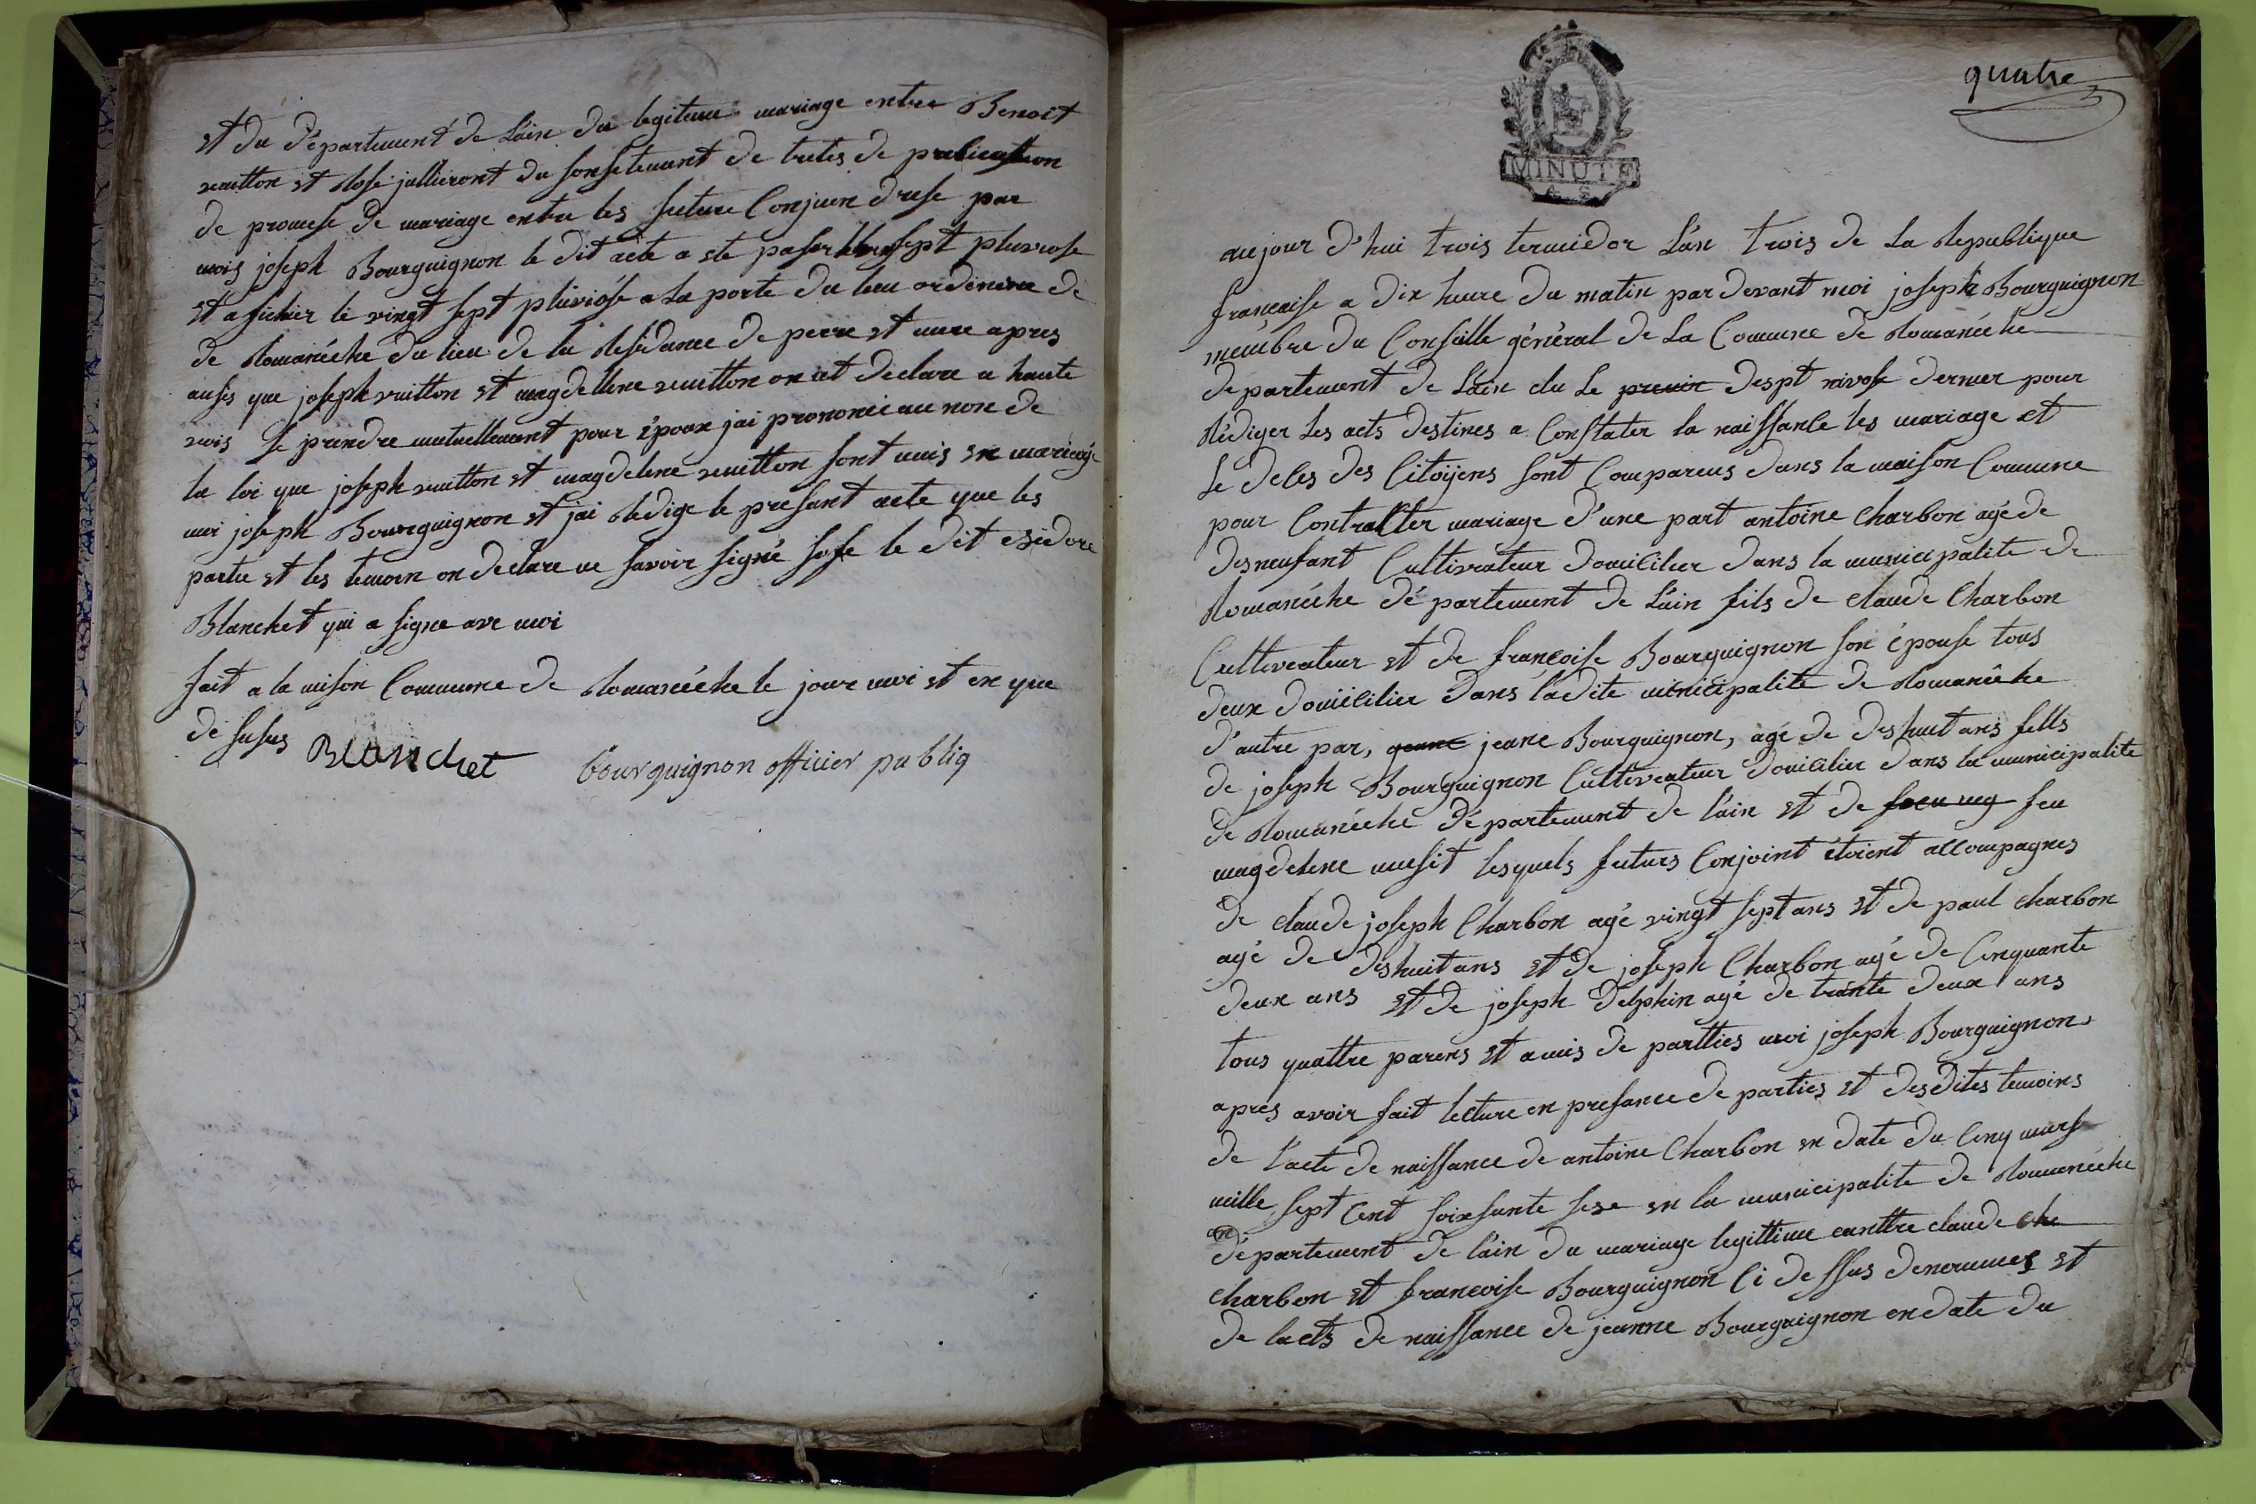 et du département de Lain du legiteme mariage entre Benoit
vuitton et Rose jullieront du sonsetement de tretes de publication
de promese de mariage entre les future Conjoin drese par
mois joseph Bourguignon le dit acte a ete paser sept pluviose
et aficher le vingt sept pluviôse a La porte du lieu ordinere de
de Romanéche du lieu de la Residance de perre et mere apres
ausis que joseph vuitton et magdellene vuitton on et declare a haute
vois Se prendre mutuellement pour époux jai prononcé au non de
la loi que joseph vuitton et magdelene vuitton sont unis en mariage
moi joseph Bourguignon et jai Redige le present acte que les
partie et les temoin on declare ne savoir signé sofe le dit esidore
Blanchet qui a signe ave moi
fait a la mison Commune de Romanéche le jour moi et en que
de susus Blanchet bourguignon officier publiq
quatre
MINUTE
aujour d'hui trois termidor L'an trois de La Republique
francaise a dix heure du matin par devant moi joseph Bourguignon
membre du Conseille général de La Commune de Romanéche
departement de Lain elu Le premier despt nivose dernier pour
Rédiger Les acts destines a Constater la naissance les mariage et
Le deces des Citoÿens sont Compareus dans la maison Commune
pour Contracter mariage d'une part antoine Charbon agé de
desneufant Cultivateur domicilier dans la municipalite de
Romanéche département de Lain fils de claude Charbon
Cultiveateur et de françoise Bourguignon son épouse tous
deux domicilier dans ladite municipalite de Romanéche
d'autre par, jeane jeane Bourguignon, agé de deshuit ans fells
de joseph Bourguignon Cultiveateur domicilier dans la municipalité
de Romanéche département de lain et de feu
magdelene musit lesquels futurs Conjoint étoient accompagnes
de claude joseph Charbon agé vingt sept ans et de paul charbon
agé de deshuit ans et de joseph Charbon agé de Cinquante
deux ans et de joseph delphin agé de trante deux ans
tous quattre parens et amis de partties moi joseph Bourguignon
apres avoir fait lecture en presance de parties et desdites temoins
de l'acte de naissance de antoine Charbon en date du Cinq mars
mille sept Cent soixsante sese en la municipalite de Romanéche
département de lain du mariage legittime eanttre claude che
charbon et francoise Bourguignon Ci dessus denommes et
de lacts de naissance de jeanne Bourguignon en date du